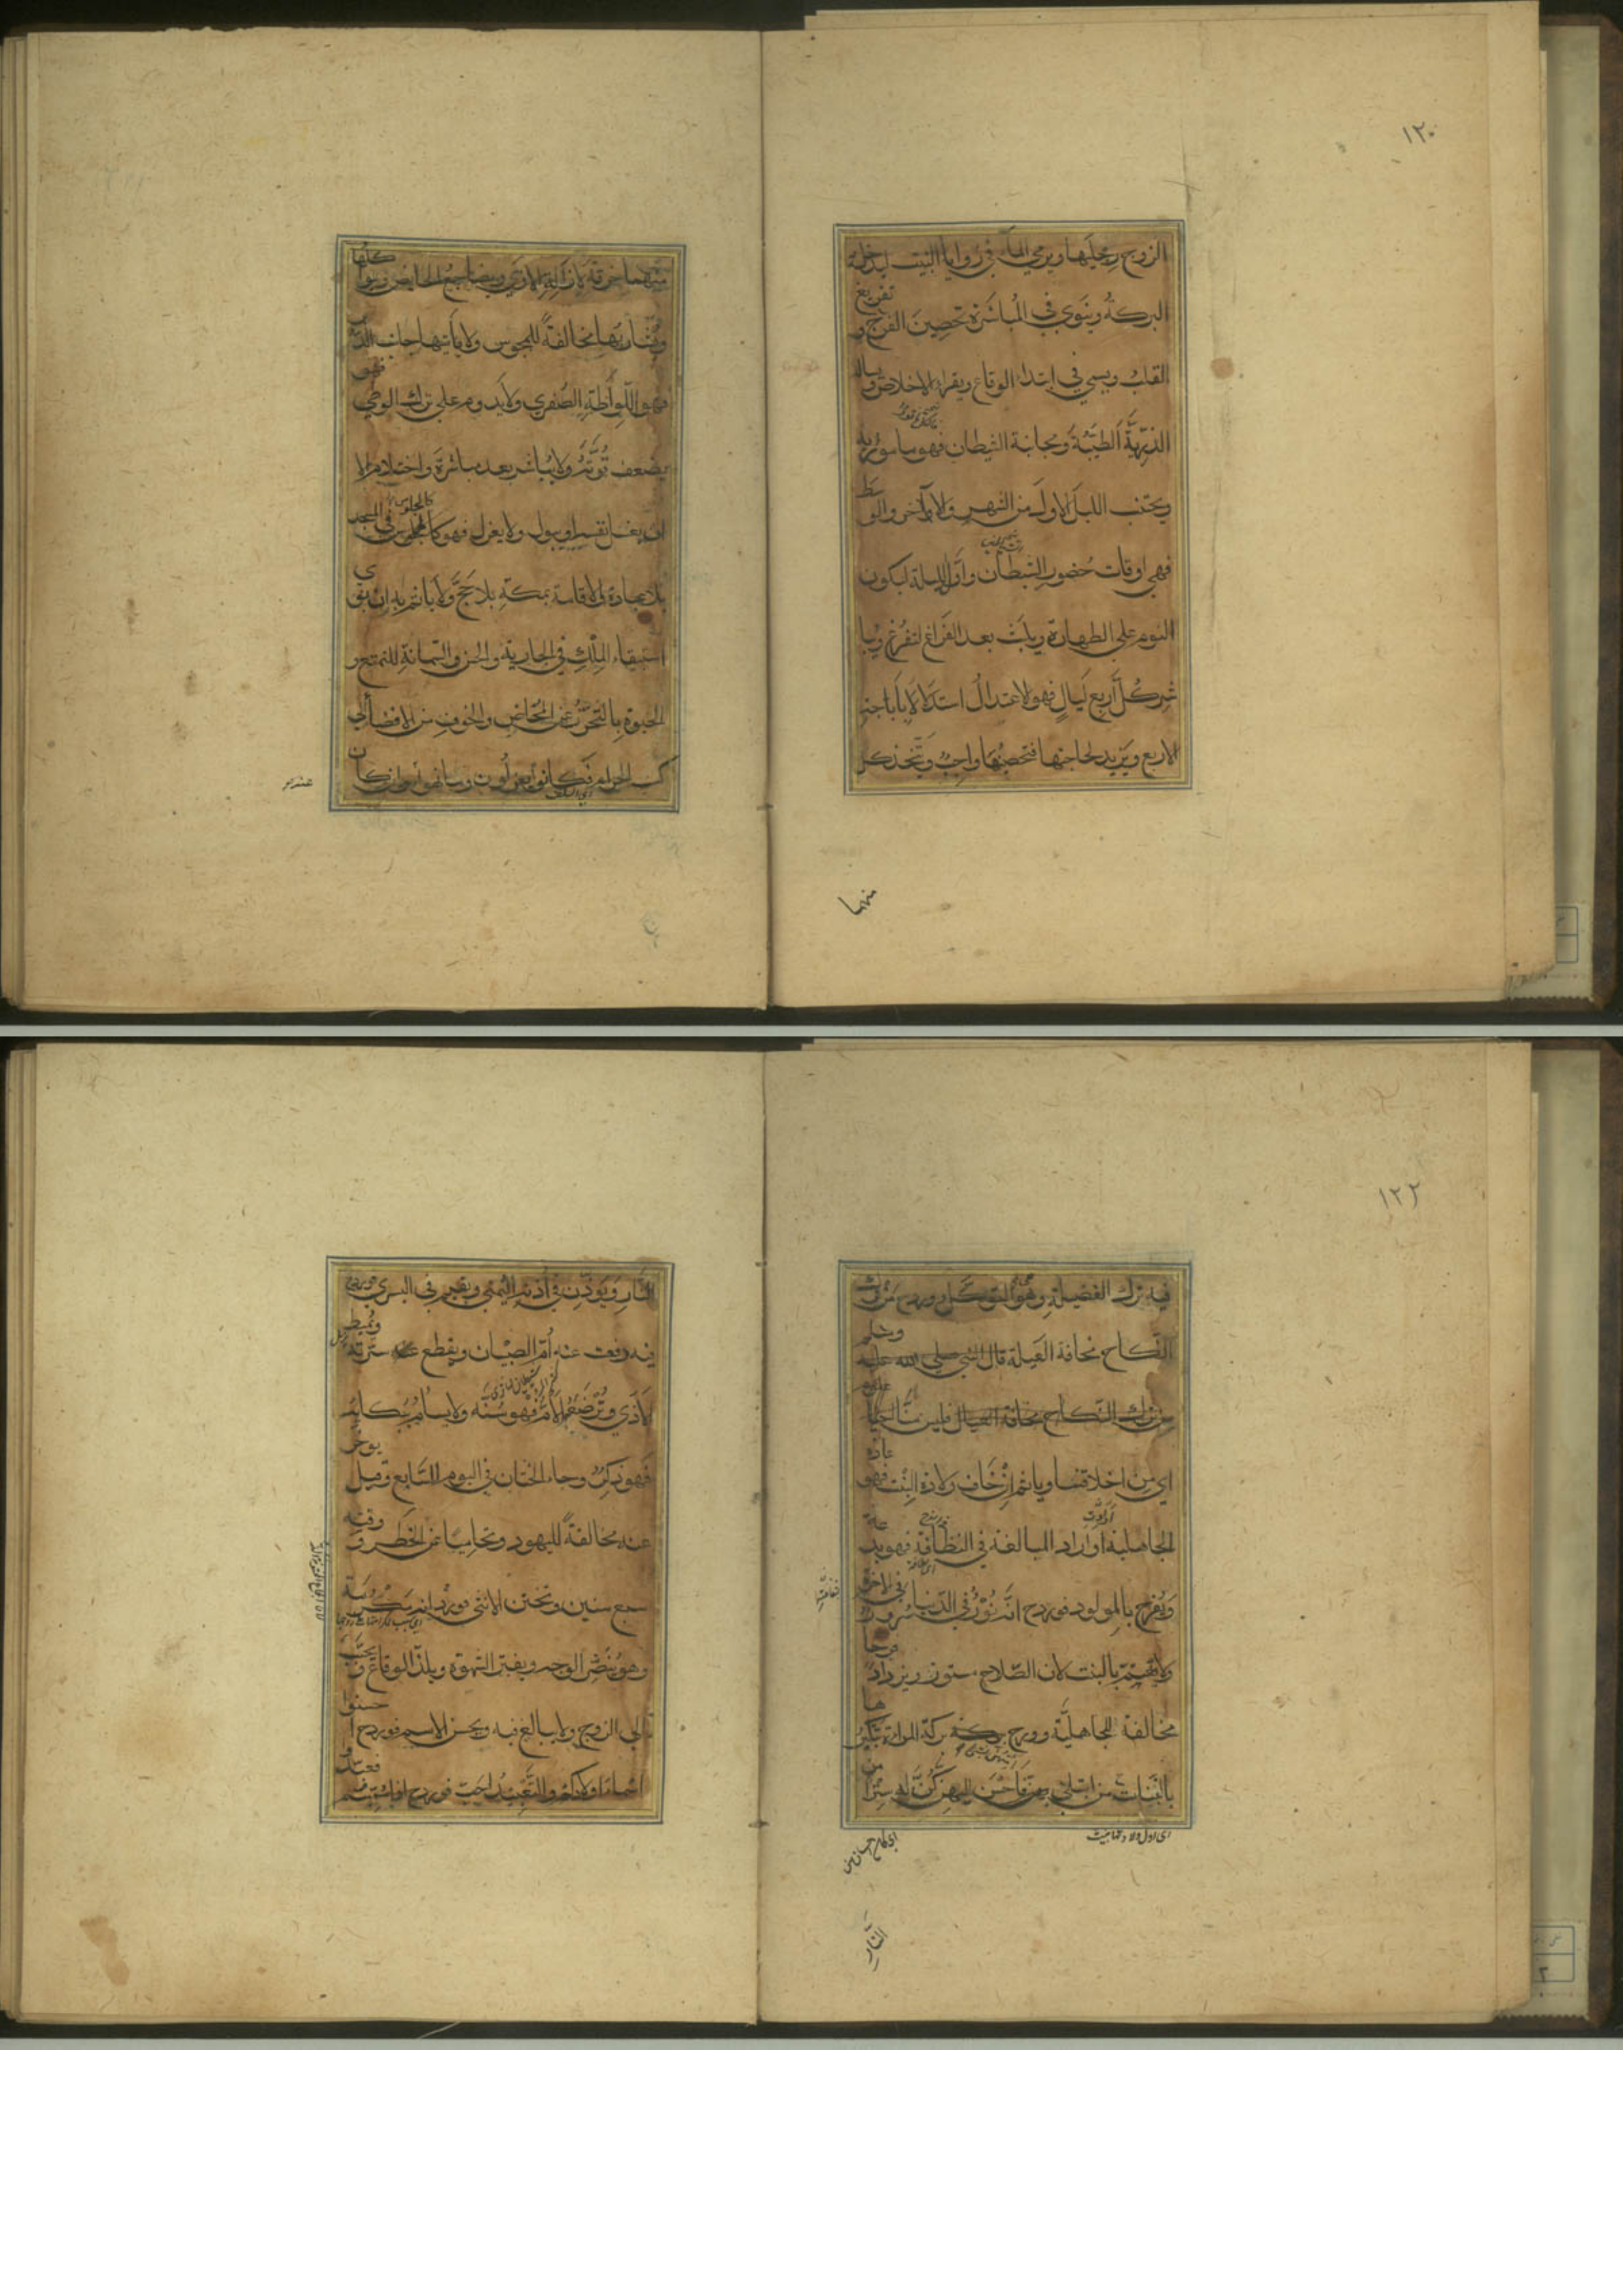 ١٢٠
الزوج رجليها ويرمي الماء في زوايا البيت ليدخله
البركة وينوي في المباشرة تحصين الفرج و تفريغ
القلب ويسمي في ابتداء الوقاع ويقراء الاخلاص و يسال
الذرية الطيبة ومجانبة الشيطان فهو مامور به
ويجتنب الليل الاول من الشهر والاخر والوسط
فهي اوقات حضور الشيطان واول الليلة ليكون
النوم على الطهارة ويلبث بعد الفراغ لتفرغ ويبا
شر كل اربع ليال فهو الاعتدال استدلالا باباحة
الاربع ويزيد لحاجتها فتحصينها واجب ويتخذ كل
منهما
منهما خرقة لازالة الاذى ويضاجع الحايض ويواكلها
ويشاربها مخالفة للمجوس ولا ياتيها جانب الدبر
فهو اللواطة الصغرى ولا يداوم على ترك الوطي
يضعف قوته ولا يباشر بعد مباشرة واحتلام الا
ان يغسل نفسه او يبول ولا يعزل فهو كالجلوس في المسجد
بلا عبادة والاقامة بمكة بلا حج ولا ياثم به ان نوي
استبقاء الملك في الجارية والحسن والسمانة للتمتع و
الحيوة بالتحرز عن المخاض والخوف من الافضاء الى
كسب الحرام فكانوا يعزلون وما نهوا وان كان
١٢٢
فيه ترك الفضيلة وهو التوكل وورد من ترك
النكاح مخافة العيلة قال النبي صلى الله عليه وسلم
من ترك النكاح مخافة العيال فليس منا
اي من اخلاقنا وياثم ان خاف ولادة البنت فهو عادة
الجاهلية او اراد المبالغة في النظافة فهو بدعة
ويفرح بالمولود فورد انه نور في الدنيا سرور في الاخرة
ولا يهتم بالبنت لان الصلاح مستور ويزداد فرحا
مخالفة للجاهلية وورد بركة المراة تبكيرها
بالبنات من ابتلي بهن فاحسن اليهن كن له سترا من
النار
النار ويوذن في اذنه اليمنى ويقيم في اليسرى فورد
فيه دفعت عنه ام الصبيان ويقطع عنه سرته ويميط
الاذى وترضعه الام فهو سنة ولا يسام ببكائه
فهو ذكر وجاء الختان في اليوم السابع وقيل يوخر
عنه مخالفة لليهود وتحاميا عن الخطر و وقته
سبع سنين وتختن الانثى فورد انه مكرمة
وهو ينضر الوجه ويفتر الشهوة ويلذ الوقاع و يحبب
الى الزوج ولا يبالغ فيه ويحسن الاسم فورد احسنوا
اسماء اولادكم والتعبيد احب فورد اذا سميتم فعبدوا